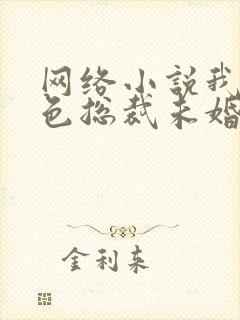 网络小说我
色总裁未婚
金利来